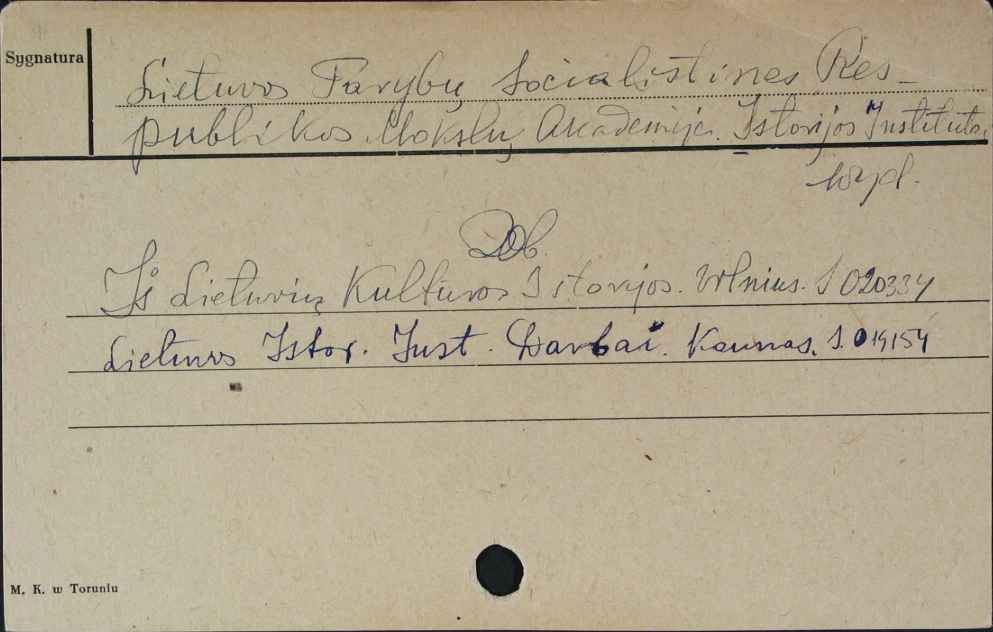 Sygnatura
Lietuvos Tarybų Socialistines Res-
publikos Mokslų Akademija. Istorijos Institutas
wyd.
Dob.
Iš Lietuvių Kultūros Istorijos. Vilnius. S 020334
Lietuvos Istor. Inst. Darbai. Kaunas. S. 019154
M. K. w Toruniu